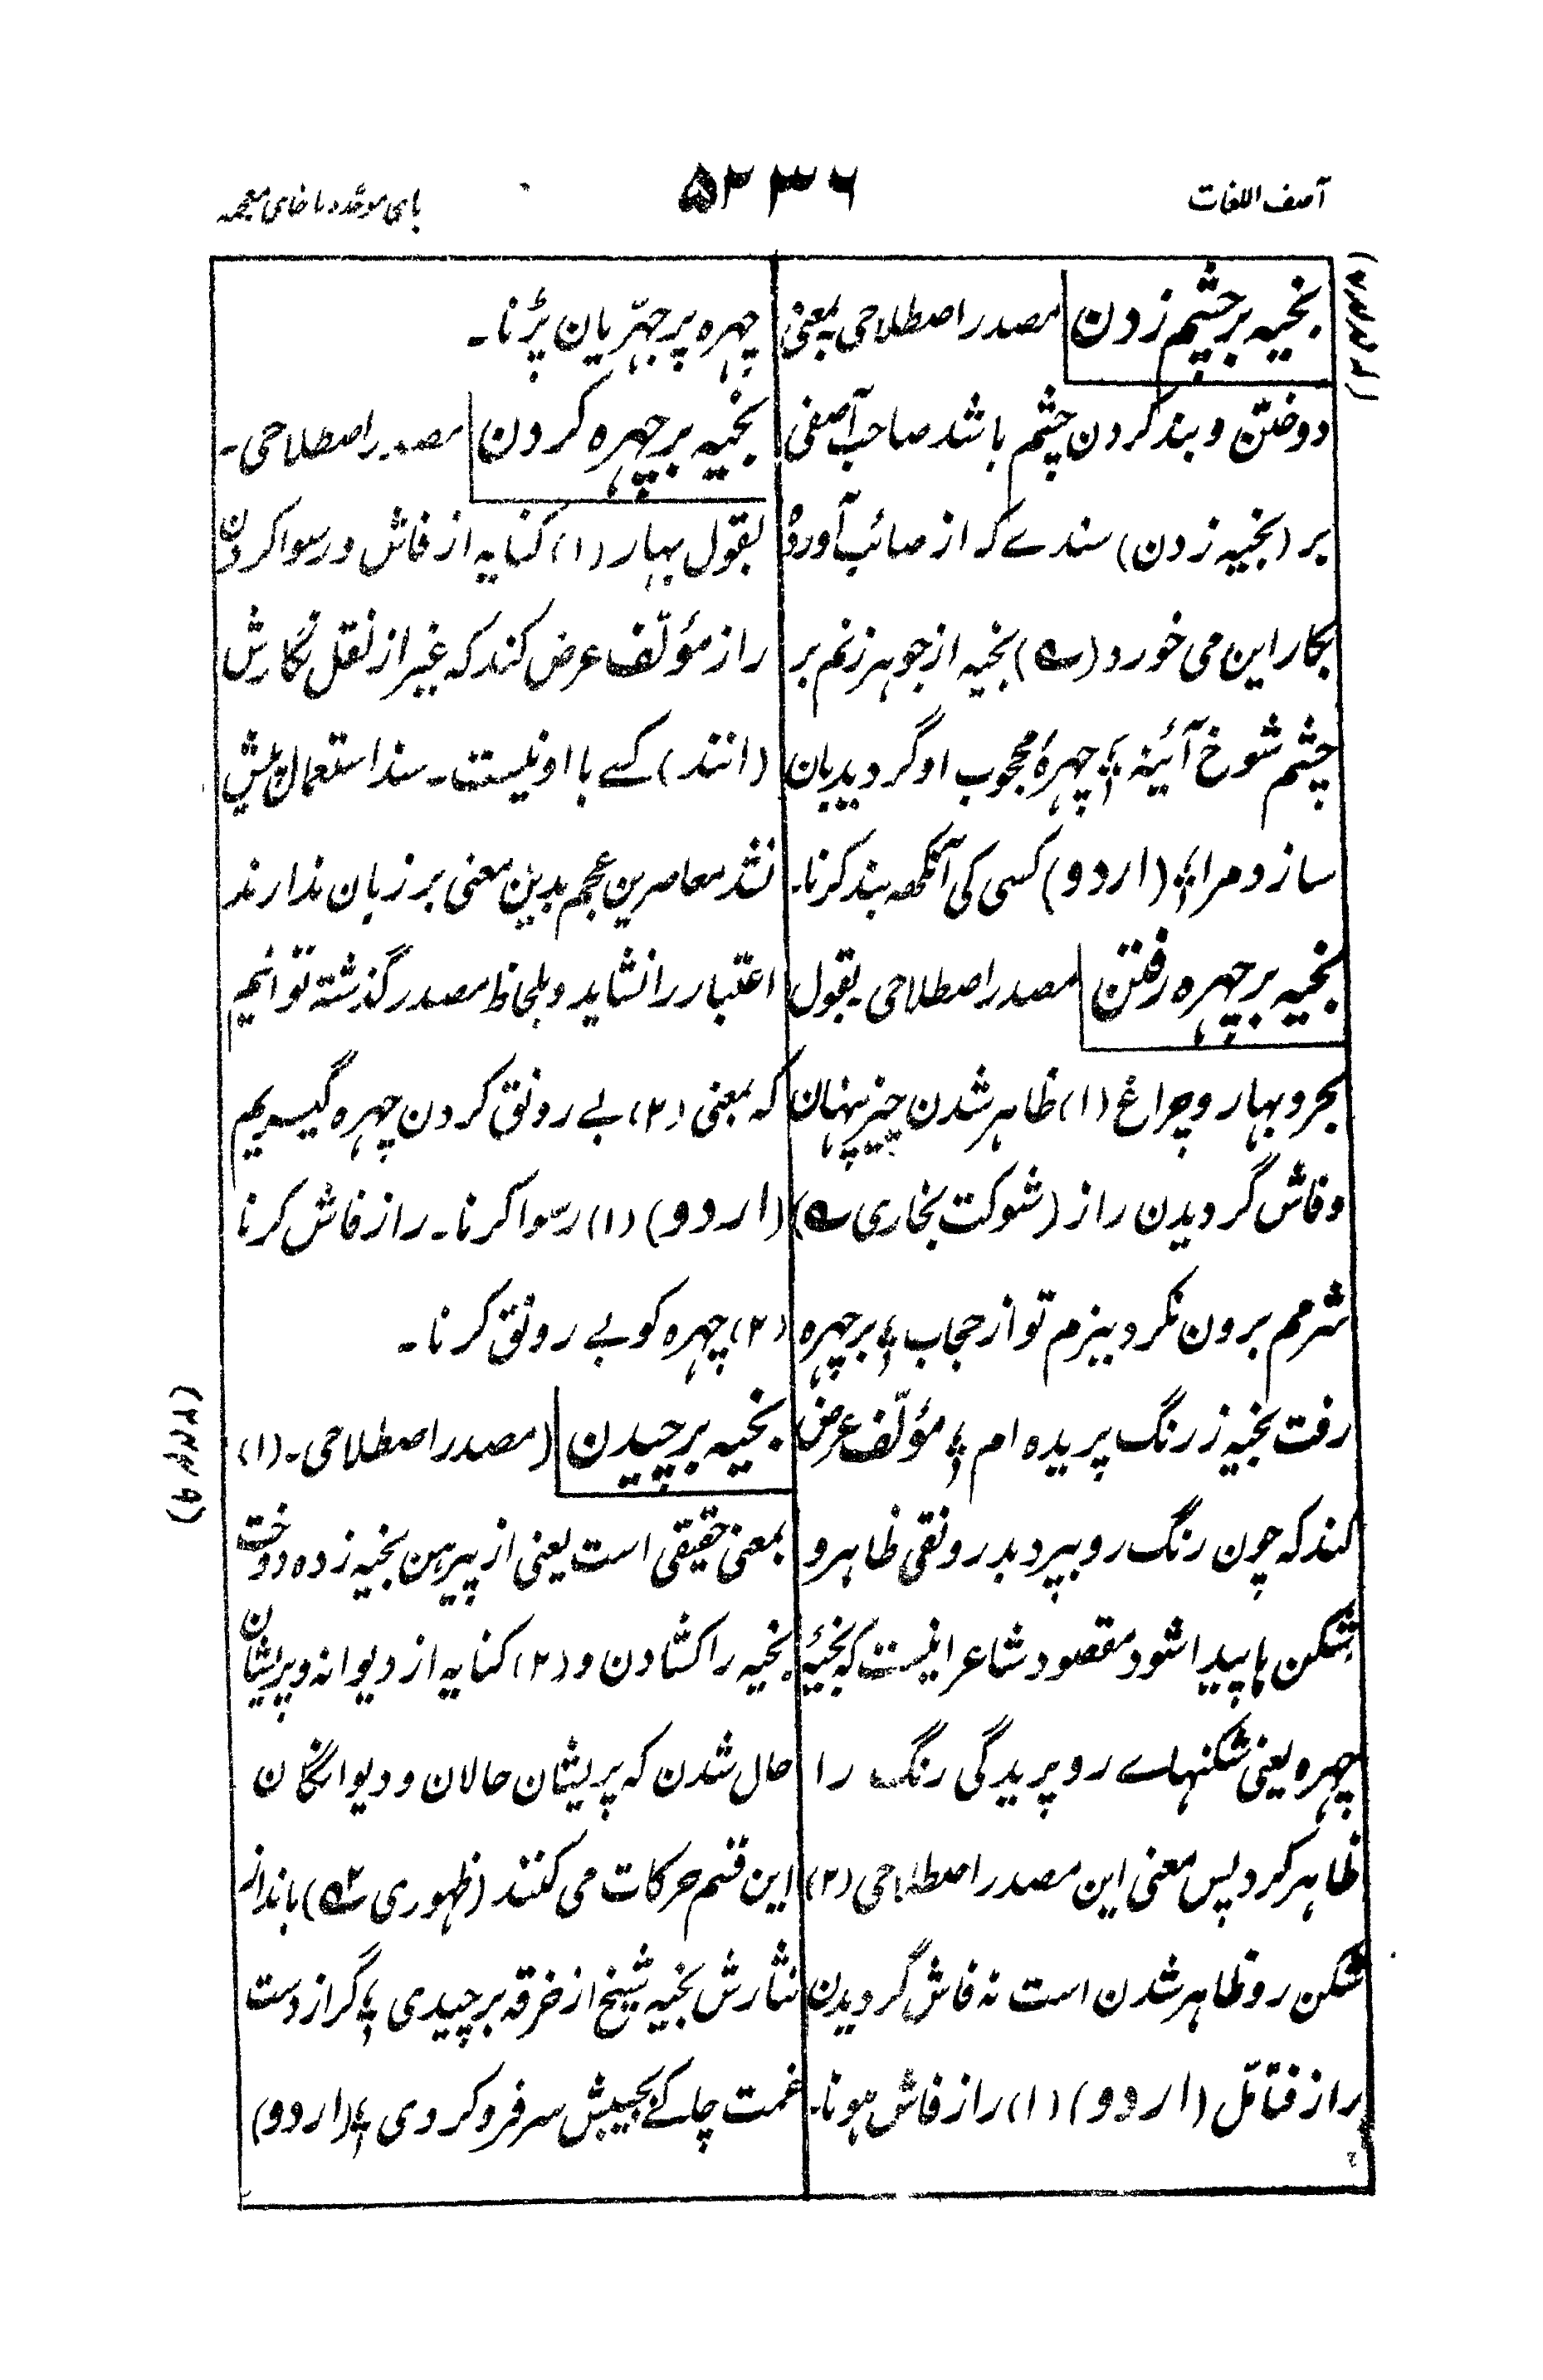 آصف اللغات
۵۲۳۶
بای موحّدہ با خای معجمہ
بخیہ بر چشم زدن مصدر اصطلاحی بمعنی
دوختن و بند کردن چشم باشد صاحب آصفی
بر (بخیہ زدن) سندے کہ از صائب آوردہ
بکار این می خورد (ے) بخیہ از جوہر زنم بر
چشم شوخ آئینہ ؛ چہرۂ محجوب او گر دیدبان
سازد مرا ؛ (اردو) کسی کی آنکھہ بند کرنا۔
بخیہ بر چہرہ رفتن مصدر اصطلاحی ۔ بقول
بحر و بہار و چراغ (۱) ظاہر شدن چیز پنہان
و فاش گردیدن راز (شوکت بخاری ے)
شرمم برون نکرد ببزم تو از حجاب ؛ بر چہرہ
رفت بخیہ ز رنگ پریدہ ام ؛ مؤلّف عرض
کند کہ چون رنگ رو بپرد بدرونقی ظاہر و
شکن ہا پیدا شود مقصود شاعر اینست کہ بخیۂ
چہرہ یعنی شکنہاے رو پریدگی رنگ را
ظاہر کرد پس معنی این مصدر اصطلاحی (۲)
شکن رو ظاہر شدن است نہ فاش گردیدن
راز فتأمّل (اردو) (۱) راز فاش ہونا۔
چہرہ پر جہرّیان پڑنا۔
بخیہ بر چہرہ کردن مصدر اصطلاحی۔
بقول بہار (۱) کنایہ از فاش و رسوا کردن
راز مؤلّف عرض کند کہ غیر از نقل نگارش
(انند) کسے با او نیست۔ سند استعمال پیش
نشد معاصرین عجم بدین معنی بر زبان ندارند
اعتبار را نشاید و بلحاظ مصدر گذشتہ توانیم
کہ بمعنی (۲) بے رونق کردن چہرہ گیریم
(اردو) (۱) رسوا کرنا۔ راز فاش کرنا
(۲) چہرہ کو بے رونق کرنا۔
بخیہ برچیدن (مصدر اصطلاحی۔ (۱)
بمعنی حقیقی است یعنی از پیرہن بخیہ زدہ دوخت
بخیہ را کشادن و (۲) کنایہ از دیوانہ و پریشان
حال شدن کہ پریشان حالان و دیوانگان
این قسم حرکات می کنند (ظہوری ے) بانداز
نثارش بخیہ شیخ از خرقہ برچیدی ؛ گر از دست
غمت چاکے بجیبش سر فرو کردی ؛ (اردو)